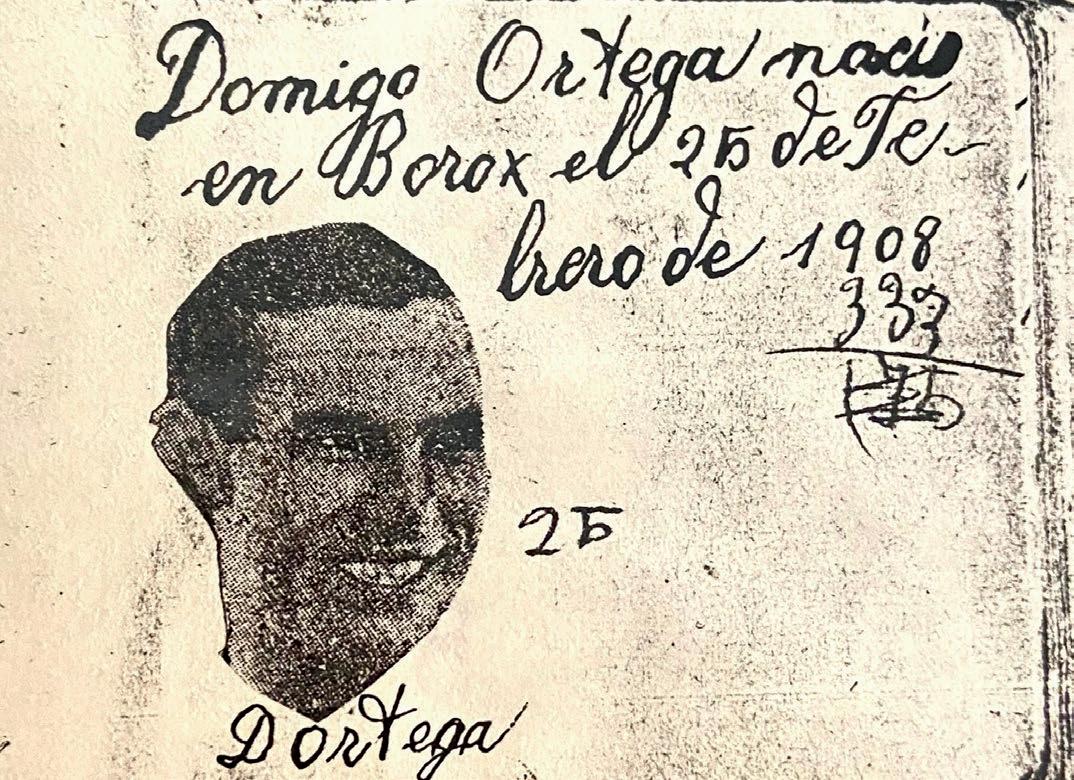 Domigo Ortega nacio
en Borox el 25 de Fe-
brero de 1908
333
25
D Ortega